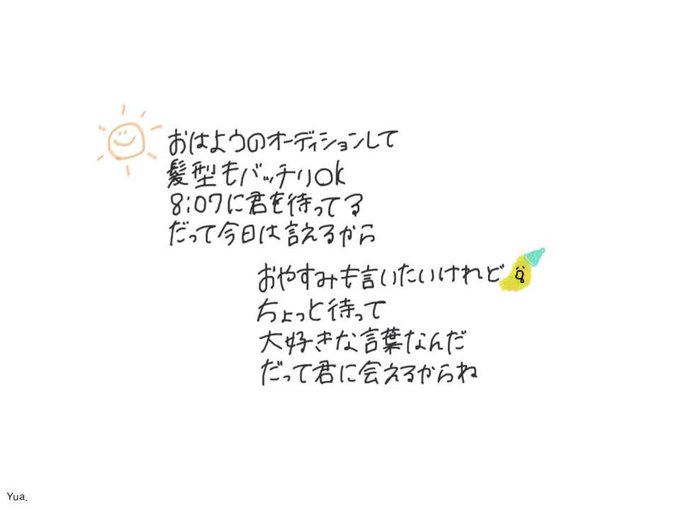 おはようのオーディションして
髪型もバッチリok
8:07に君を待ってる
だって今日は言えるから
おやすみも言いたいけれど
ちょっと待って
大好きな言葉なんだ
だって君に会えるからね
Yua.